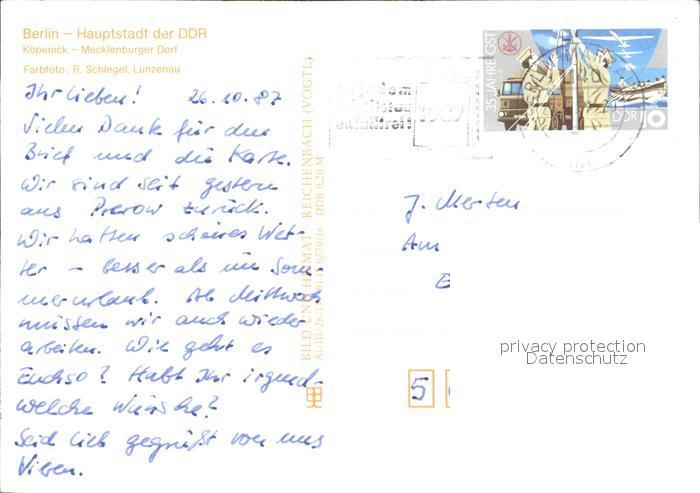 Berlin – Hauptstadt der DDR
Köpenick – Mecklenburger Dorf
Farbfoto: R. Schlegel, Lunzenau
Ihr Lieben! 26.10.87
Vielen Dank für den
Brief und die Karte.
Wir sind seit gestern
aus Prerow zurück.
Wir hatten schönes Wet-
ter – besser als im Som-
merurlaub. Ab Mittwoch
müssen wir auch wieder
arbeiten. Wie geht es
Euch so? Habt Ihr irgend-
welche Wünsche?
Seid lieb gegrüßt von uns
Vieren.
BILD UND HEIMAT REICHENBACH (VOGTL)
DDR 0,20 M
35 JAHRE GST
DDR 10
J. Merten
Am
5
privacy protection
Datenschutz